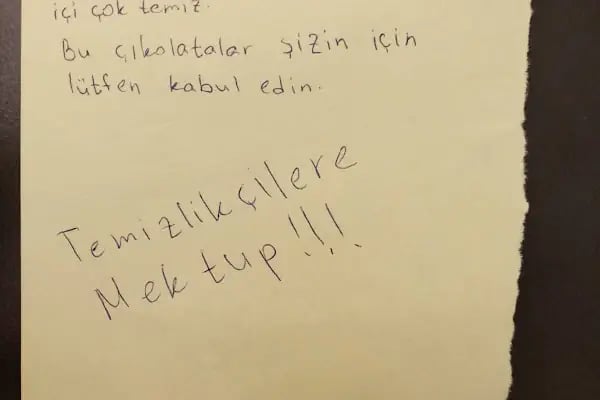 içi çok temiz.
Bu çikolatalar şizin için
lütfen kabul edin.
Temizlikçilere
Mektup!!!